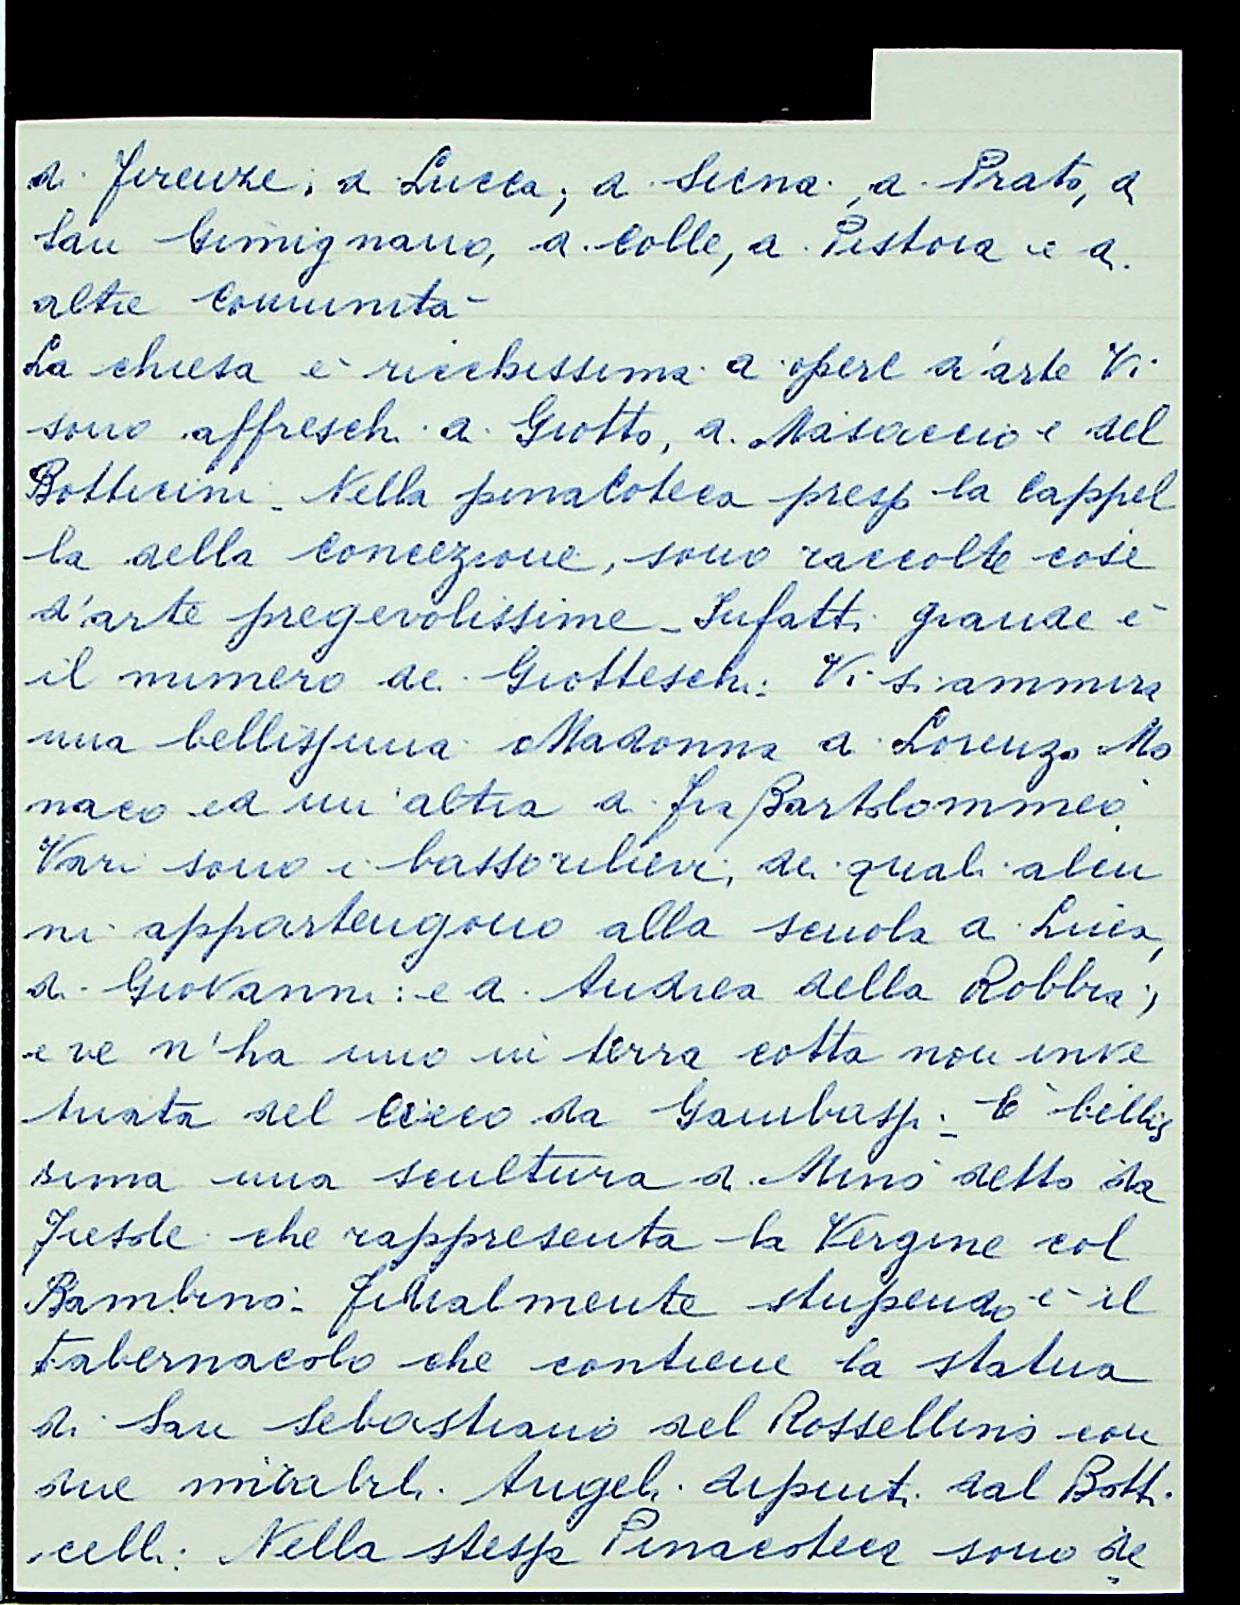 di Firenze, a Lucca, a Siena, a Prato, a
San Gimignano, a Colle, a Pistoia e a
altre comunità -
La chiesa è ricchissima di opere d'arte Vi
sono affreschi di Giotto, di Masaccio e del
Botticini - Nella pinacoteca presso la Cappel
la della Concezione, sono raccolte cose
d'arte pregevolissime - Infatti grande è
il numero dei Giotteschi: Vi si ammira
una bellissima Madonna di Lorenzo Mo
naco ed un'altra di Fra Bartolommeo.
Vari sono i bassorilievi, dei quali alcu
ni appartengono alla scuola di Luca,
di Giovanni: e di Andrea della Robbia;
e ve n'ha uno in terra cotta non inve
triata del Cieco da Gambassi - È bellis
sima una scultura di Mino detto da
Fiesole che rappresenta la Vergine col
Bambino - Finalmente stupendo è il
Tabernacolo che contiene la statua
di San Sebastiano del Rossellino con
due mirabili Angeli dipinti dal Botti
celli: Nella stessa Pinacoteca sono de